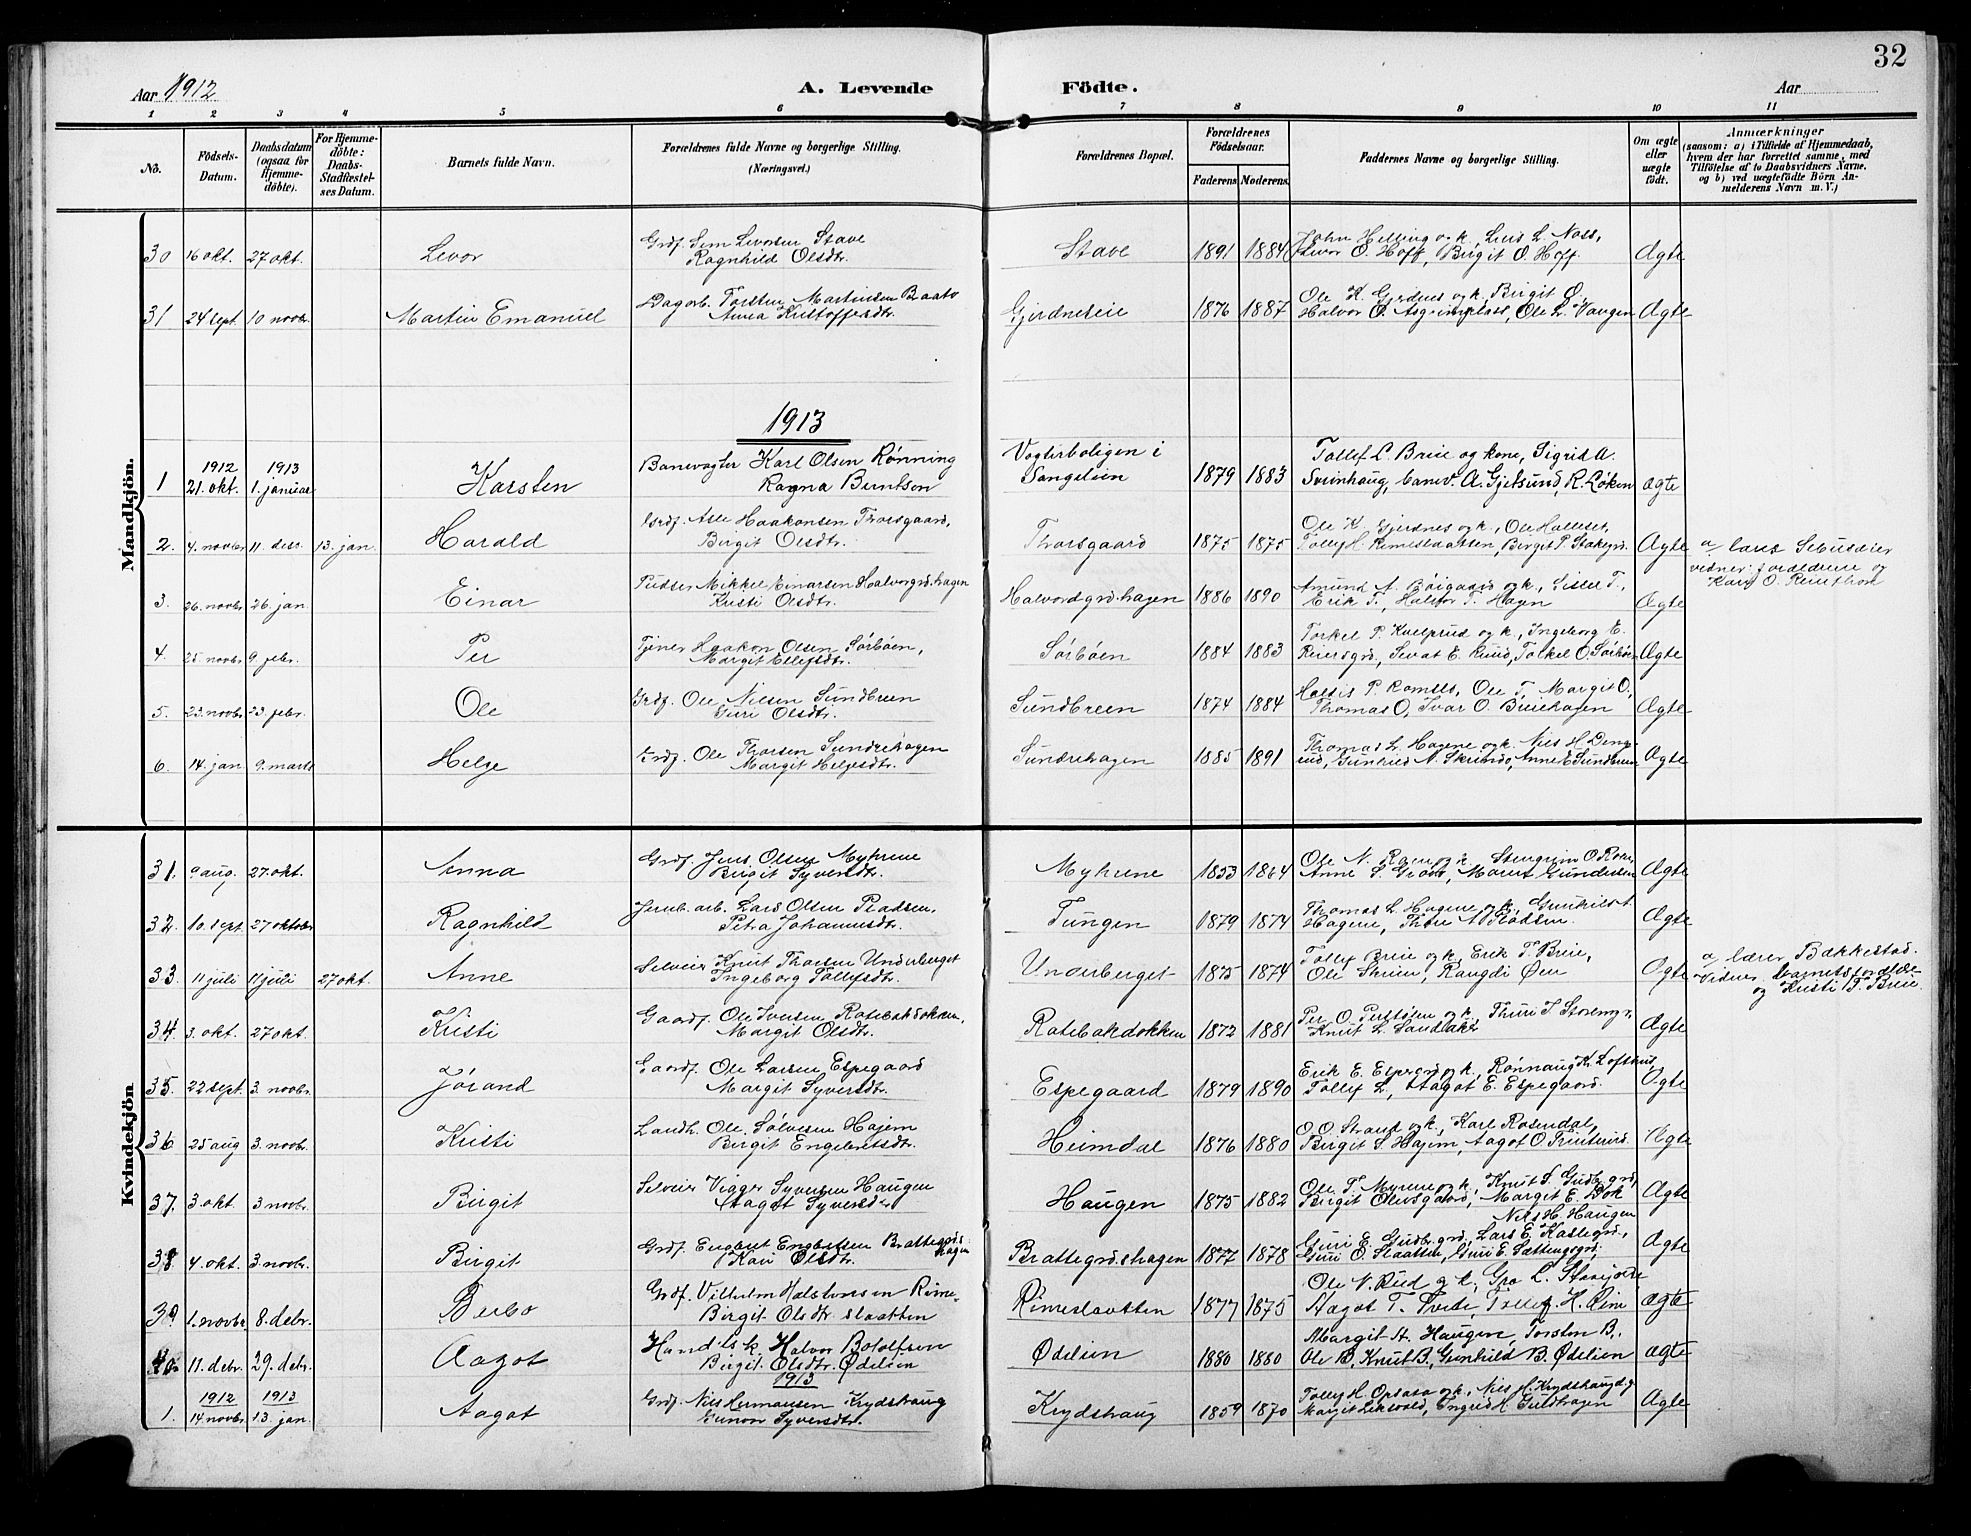 32
Aar 1912
A. Levende
Födte.
Aar
1 2 3 4 5 6 7 8 9 10 11
No.
Födsels-Datum.
Daabsdatum (ogsaa for Hjemme-döbte).
For Hjemme-döbte: Daabs-Stadfæstel-ses Datum.
Barnets fulde Navn.
Forældrenes fulde Navne og borgerlige Stilling. (Næringsvei.)
Forældrenes Bopæl.
Forældrenes Födselsaar.
Faderens. Moderens.
Faddernes Navne og borgerlige Stilling.
Om ægte eller uægte födt.
Anmærkninger
(saasom: a) i Tilfælde af Hjemmedaab,
hvem der har forrettet samme, med
Tilföielse af to Daabsvidners Navne.
og b) ved uægtefödte Börn An-
melderens Navn m. V.)
Mandkjön.
30 16 okt. 27 okt. Levor
Grdf. Sem Levorsen Stave
Ragnhild Olsdtr.
Stave 1891 1884
John Helling o. k., Luis L. Noss,
Levor O. Hoff, Birgit O. Hoff.
Ægte
31 24 sept. 10 novbr. Martin Emanuel
Dagarb. Torsten Martinsen Braato
Anna Kristoffersdtr.
Gjerdneseie 1876 1887
Ole K. Gjerdnes og k, Birgit O.
Halvor O. Asgrimplass, Ole L. Vangen
Ægte
1913
1912 1913
1 21. okt. 1. januar Karsten
Banevogter Karl Olsen Rønning
Ragna Berntsen
Vogterboligen i
Sangelien 1879 1883
Tollef L. Breie og kone, Sigrid A.
Svinhaug, banev. A. Gjelsund, R. Løken
ægte
2. 4. novbr. 11. debr. 13. jan. Harald
Grdf. Asle Haakonsen Thorsgaard,
Birgit Olsdtr.
Thorsgaard 1875 1875
Ole K. Gjerdnes og k., Ole Halleset,
Tollef H. Rimeslaatten, Birgit P. Stakegrd.
Ægte
a/ lærer Sebuseier
vidner: forældrene og
Kari O. Ruuthon
3. 26. novbr 26. jan. Einar
Pudser Mikkel Einarsen Halvorsgrd.hagen
Kristi Olsdtr.
Halvordgrd.hagen 1886 1890
Amund A. Bøigaard og k., Sissel T.,
Erik T., Halvor T. Hagen
Ægte
4. 25. novbr. 9. febr. Per
Tjener Haakon Olsen Sørbøen,
Margit Ellefsdtr.
Sørbøen 1884 1883
Torkel P. Kvelprud og k., Ingeborg E.
Reiersgrd., Sevat E. Ruud, Torkel O. Sørbøen
Ægte
5. 23. novbr. 23. febr. Ole
Grdf. Ole Nilsen Sundbreen
Guri Olsdtr.
Sundbreen 1874 1884
Halsis P. Romsls, Ole T. Margit O.,
Thomas O, Ivar O. Breiehagen
Ægte
6. 14. jan 9. marts Helge
Grdf. Ole Thorsen Sundrehagen
Margit Helgesdtr.
Sundrehagen 1885 1891
Thomas L. Hagene og k. Nils H. Deng-
rud, Gunhild N. Skrindo, Anne E Sundbreen
Ægte
Kvindekjön
31. 9 aug. 27. okt. Anna
Grdf. Jens Olsen Myhrene
Birgit Syversdtr.
Myhrene 1853 1864
Ole N. Roene og k., Stengrim O. Roen,
Anne S. Groth, Maren Gundersen
Ægte
32. 10. sept. 27 oktober Ragnhild
Jernb. arb. Lars Olsen Pladsen,
Petra Johannesdtr.
Tungen 1879 1874
Thomas L. Hagene og k., Gunhild A
Hagene, Thore A. Pladsen
Ægte
33 11 juli 11 juli 27 okt. Anne
Selveier Knut Thorsen Underberget
Ingeborg Tollefsdtr.
Underberget 1875 1874
Tollef Breie og k., Erik T. Breie,
Ole Skrim, Rangdi Øen
Ægte
a/ lærer Bækkestad.
Vidner barnets forældre
og Kristi T. Breie.
34. 3. okt. 27 okt. Kristi
Gaardf. Ole Iversen Rotebakdokken,
Margit Olsdtr.
Rotebakdokken 1872 1881
Per O. Perstølen og k., Thuri I. Storemyr,
Knut L. Sandaker
Ægte
35. 22 sept. 3. novbr. Jørand
Gaardf. Ole Larsen Espegaard
Margit Syversdtr.
Espegaard 1879 1890
Erik E. Espegrd og k., Rønnaug K. Lofthus,
Tollef L., Aagot E. Espegaard.
Ægte
36 25 aug 3. novbr. Kristi
Landh. Ole Sølvesen Hajem
Birgit Engebretsdtr.
Heimdal 1876 1880
O. O. Strand og k., Karl Rosendal,
Birgit S. Hajem, Aagot O. Trinterud.
Ægte
37. 3 okt. 3 novbr. Birgit
Selveier Vigger Syversen Haugen
Aagot Syversdtr
Haugen 1875 1882
Ole T. Myrene og k., Knut S. Gudbr.grd,
Birgit Olevsgaard, Margit E. Bøk
Nils H. Haugen
Ægte
38 4. okt. 3. novbr. Birgit
Grdf. Engebret Engebretsen Brattegrds-
hagen
Kari Olsdtr.
Brattegrdshagen 1877 1878
Guri E. Gudbr.grd, Lars E. Kaslegrd.,
Guri O. Slaatten, Guri E. Sættengsgrd.
Ægte
39 1. novbr. 8. debr. Berbo
Grdf. Vilhelm Halstensen Rime-
Birgit Olsdtr slaatten
Rimeslaatten 1877 1875
Ole N. Rud og k., Gro L. Stavijorde
Aagot T. Tveito, Tollef H. Lim
Ægte
40 11. debr. 29. debr. Aagot
Handelsk. Halvor Botolfsen
Birgit Olsdtr. Ødelien
Ødelien 1880 1880
Margit A. Haugen, Torsten B.,
Ole B, Knut B., Gunhild B. Ødelien
ægte
1913
1912 1913
1. 14 novbr. 13. jan. Aagot
Grdf. Nils Hermansen Krydshaug
Gunvor Syversdtr.
Krydshaug 1859 1870
Tollef H. Opsata og k., Nils H. Krydshaug og
Margit Leksvold, Ingrid H. Guldhagen
Ægte